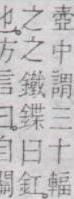 壺中謂三十輻
之之鐵鍱曰釭
也方言曰自關